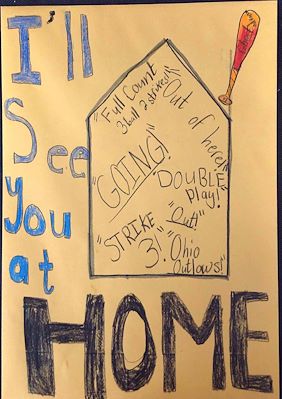 I'll
See
You
at
HOME
"Full Count
3 ball 2 strikes!!"
"Out of here!"
"GOING!"
"DOUBLE
Play!"
"Out!"
"STRIKE
3!"
"Ohio
Outlows!"